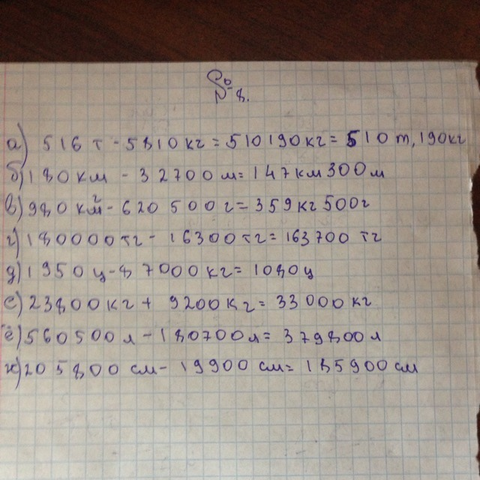 № 8.
а) 516 т - 5810 кг = 510190 кг = 510 т, 190 кг
б) 180 км - 32700 м = 147 км 300 м
в) 980 кг - 620 500 г = 359 кг 500 г
г) 180000 тг - 16300 тг = 163700 тг
д) 1950 ц - 87000 кг = 1080 ц
е) 23800 кг + 9200 кг = 33 000 кг
ё) 560500 л - 180700 л = 379800 л
ж) 205800 см - 19900 см = 185900 см